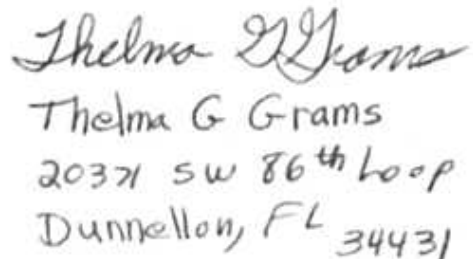 Thelma G Grams
Thelma G Grams
20371 SW 86th Loop
Dunnellon, FL 34431